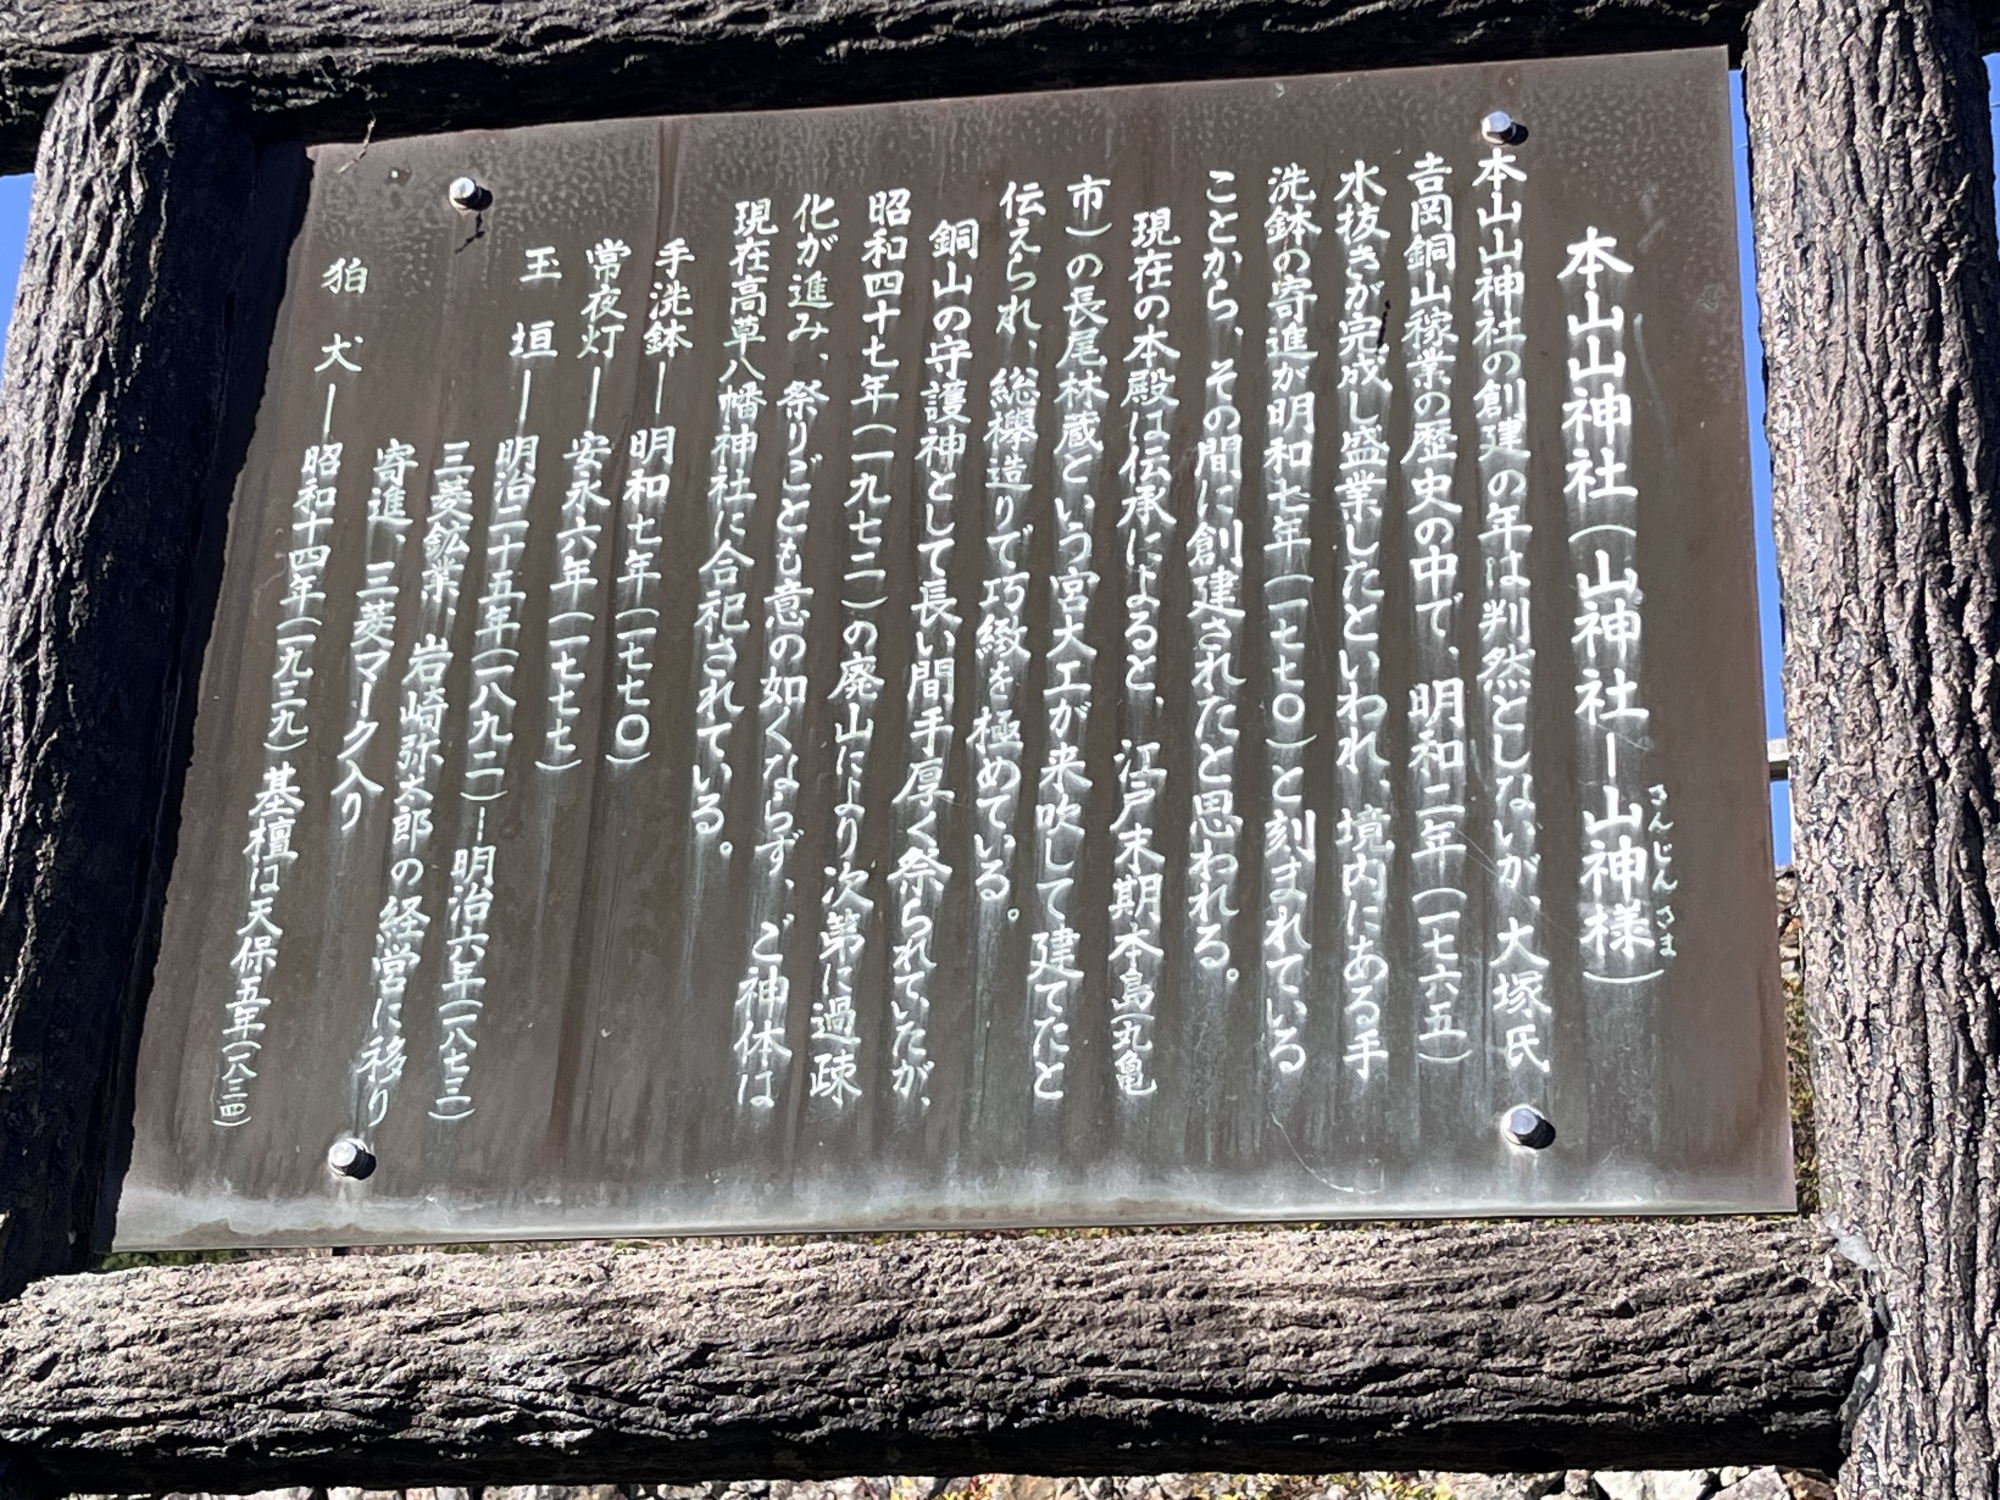 本山山神社（山神社―山神様）
さんじんさま
本山山神社の創建の年は判然としないが、大塚氏
吉岡銅山稼業の歴史の中で、明和二年（一七六五）
水抜きが完成し盛業したといわれ、境内にある手
洗鉢の寄進が明和七年（一七七〇）と刻まれている
ことから、その間に創建されたと思われる。
現在の本殿は伝承によると、江戸末期本島（丸亀
市）の長尾林蔵という宮大工が来吹して建てたと
伝えられ、総欅造りで巧緻を極めている。
銅山の守護神として長い間手厚く祭られていたが、
昭和四十七年（一九七二）の廃山により次第に過疎
化が進み、祭りごとも意の如くならず、ご神体は
現在高草八幡神社に合祀されている。
手洗鉢―明和七年（一七七〇）
常夜灯―安永六年（一七七七）
玉垣―明治二十五年（一八九二）―明治六年（一八七三）
三菱鉱業、岩崎弥太郎の経営に移り
寄進、三菱マーク入り
狛犬―昭和十四年（一九三九）基檀は天保五年（一八三四）